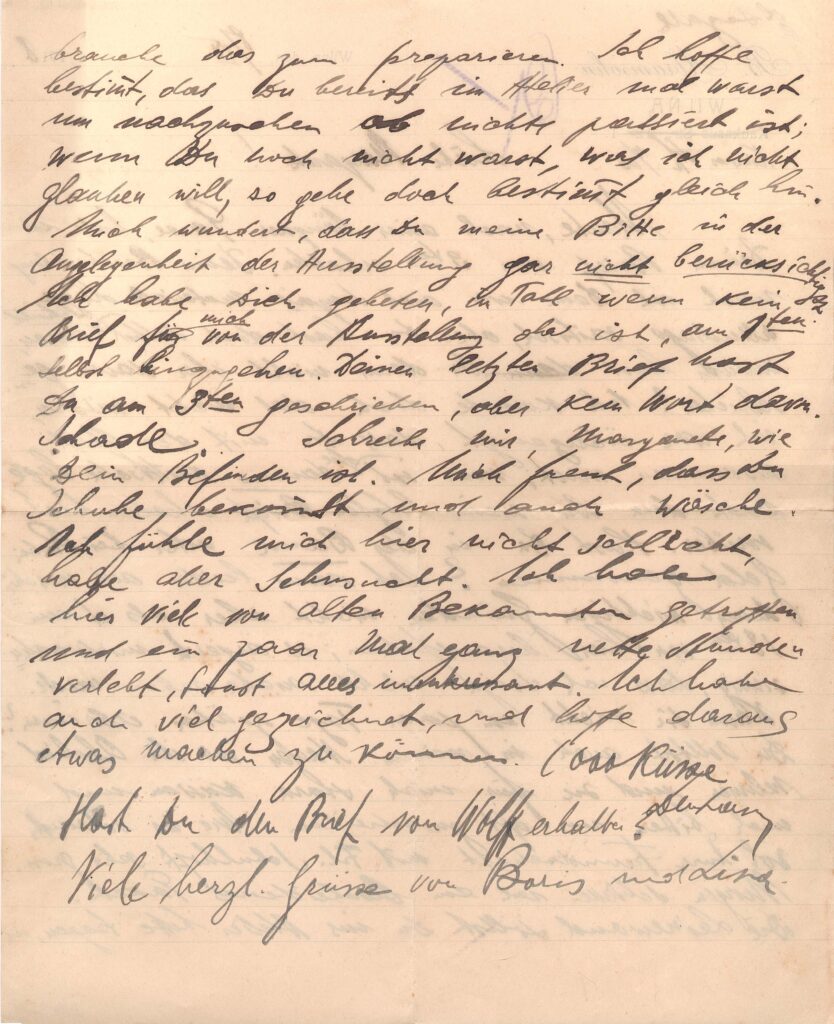 brauche das zum preparieren. Ich hoffe
bestimt, das Du bereits im Atelier mal warst
um nachzusehen ob nichts passiert ist;
wenn Du noch nicht warst, was ich nicht
glauben will, so gehe doch bestimt gleich hin.
Mich wundert, dass Du meine Bitte in der
Angelegenheit der Ausstellung gar nicht berücksichtigst
Ich habe Dich gebeten, im Fall wenn kein
Brief für mich von der Ausstellung da ist, am 1ten
selbst hinzugehen. Deinen letzten Brief hast
Du am 3ten geschrieben, aber kein Wort davon.
Schade. Schreibe mir, Margarete, wie
Dein Befinden ist. Mich freut, dass Du
Schuhe bekomst und auch Wäsche.
Ich fühle mich hier nicht schlecht,
habe aber Sehnsucht. Ich habe
hier viele von alten Bekannten getroffen
und ein paar Mal ganz nette Stunden
verlebt, sonst alles uninteressant. Ich habe
auch viel gezeichnet, und hoffe daraus
etwas machen zu können. 1000 Küsse
Hast Du den Brief von Wolff erhalten?
Viele herzl. Grüsse von Boris und Lisa.
WILNA